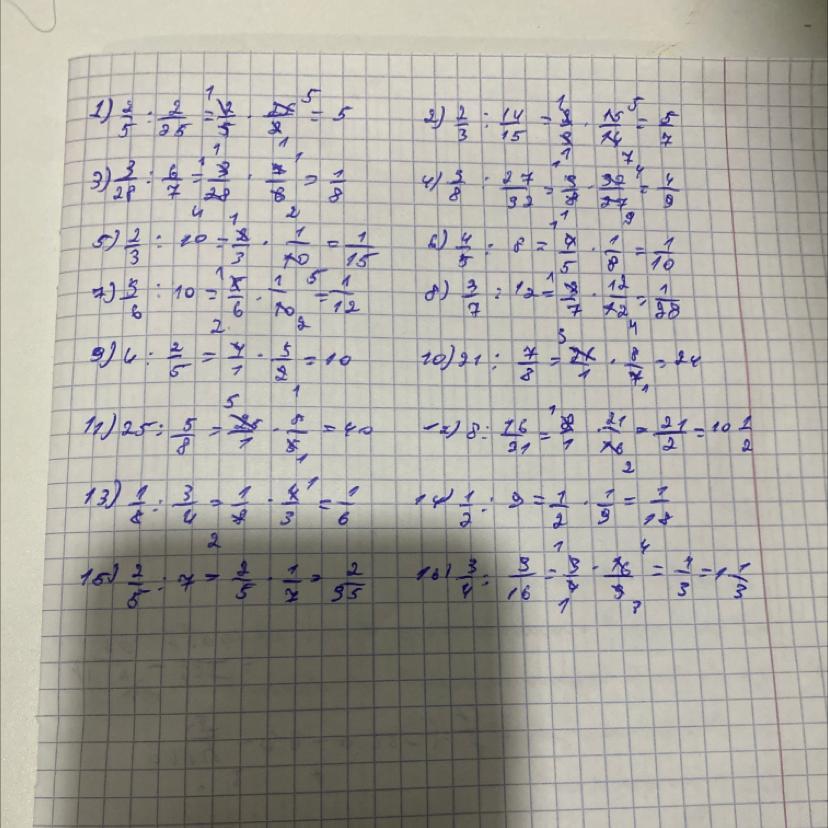 1) 2/5 : 2/25 = 2/5 · 25/2 = 5 2) 2/3 : 14/15 = 2/3 · 15/14 = 5/7
3) 3/28 : 6/7 = 3/28 · 7/6 = 1/8 4) 3/8 : 27/32 = 3/8 · 32/27 = 4/9
5) 2/3 : 10 = 2/3 · 1/10 = 1/15 6) 4/5 : 8 = 4/5 · 1/8 = 1/10
7) 5/6 : 10 = 5/6 · 1/10 = 1/12 8) 3/7 : 12 = 3/7 · 12/12 = 1/28
9) 4 : 2/5 = 4/1 · 5/2 = 10 10) 21 : 7/8 = 21/1 · 8/7 = 24
11) 25 : 5/8 = 25/1 · = 40 8 : 16/21 = 8/1 · 21/16 = 21/2 = 10 1/2
13) 1/8 : 3/4 = 1/8 · 4/3 = 1/6 14) 1/2 : 9 = 1/2 · 1/9 = 1/18
15) 2/5 : 7 = 2/5 · 1/7 = 2/35 16) 3/4 : 3/16 = 3/4 · = 4/3 = 1 1/3